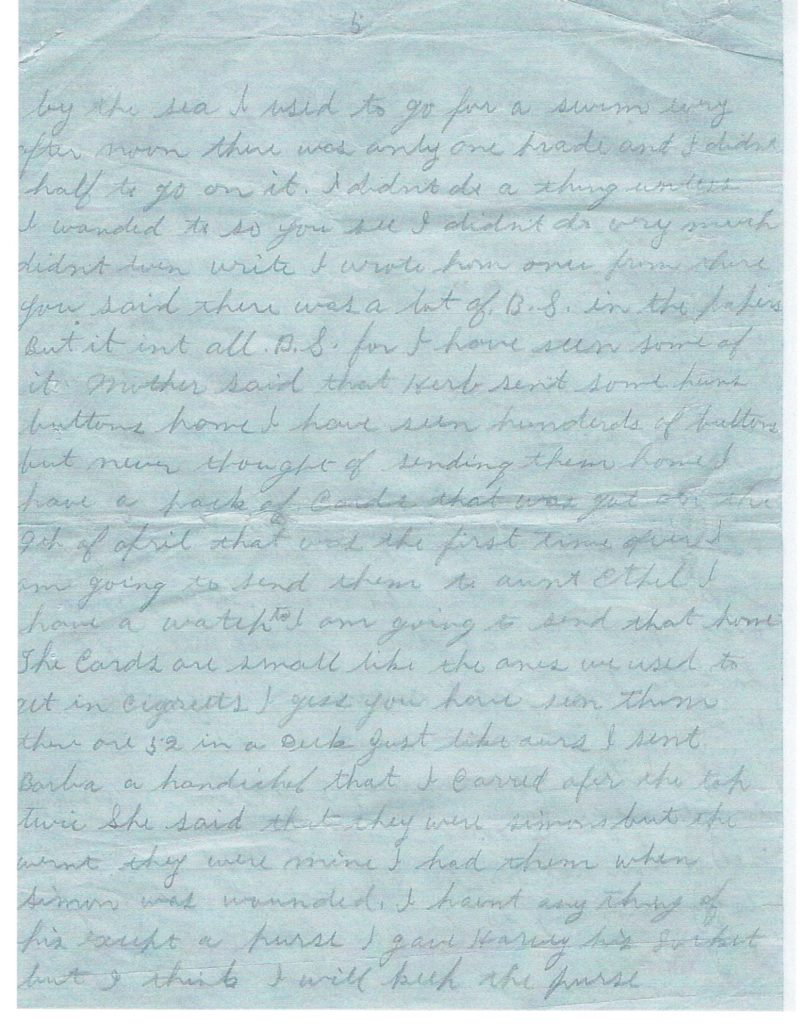 5
by the sea I used to go for a swim evry
after noon there was only one prade and I didnt
half to go on it. I didnt do a thing unless
I wanded to so you see I didnt do very much
didnt even write I wrote hom once from there
you said there was a lot of B.S. in the papers
But it int all B.S. for I have seen some of
it Mother said that Herb sent some huns
buttons home I have seen hunderds of buttons
but never thought of sending them home I
have a pack of Cards that was got on the
9th of april that was the first time over I
am going to send them to aunt Ethel I
have a watch to I am going to send that home
The Cards are small like the ones we used to
get in Cigretts I gess you have seen them
there are 52 in a Deck Just like ours I sent
Barba a that I Carred ofer the top
twic She said that they were simons but the
wernt they were mine I had them when
simon was wounded. I haint any thing of
his except a purse I gave Harvey his
but I think I will keep the purse